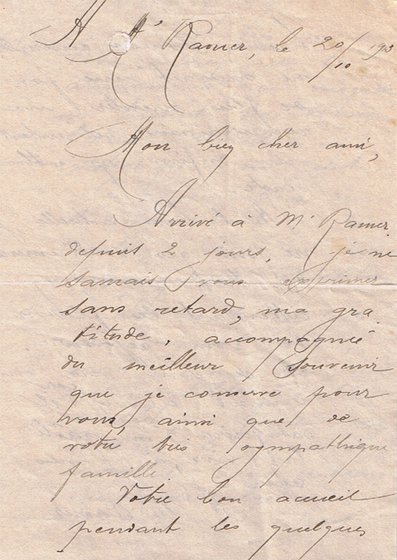 A Mr Ramer, le 20/10 193
Mon bien cher ami,
Arrivé à Mr Ramer
depuis 2 jours, je ne
vous exprimer
sans retard, ma gra
titude, accompagnée
du meilleur souvenir
que je conserve pour
vous, ainsi que de
votre très sympathique
famille.
Votre bon accueil
pendant les quelques